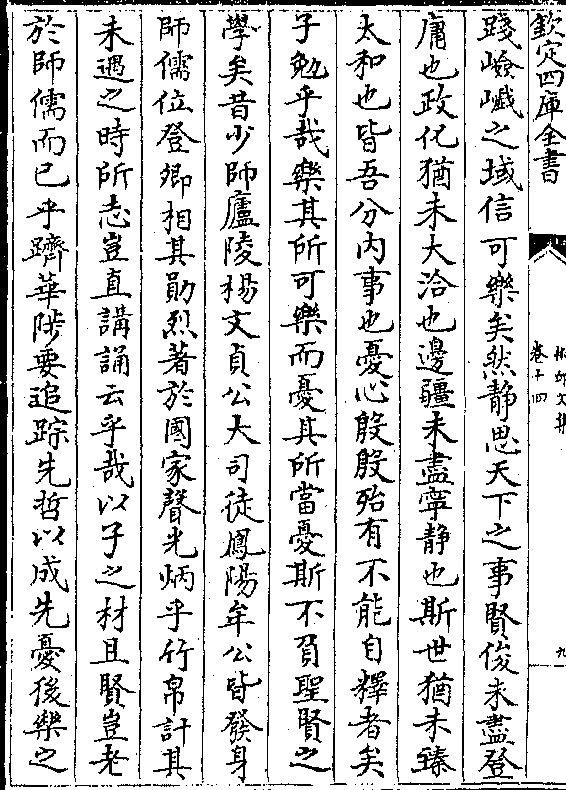 欽定四庫全書
椒邱文集
卷十四
九
踐嶮巇之域信可樂矣然静思天下之事賢俊未盡登
庸也政化猶未大洽也邊疆未盡寧静也斯世猶未臻
太和也皆吾分内事也憂心殷殷殆有不能自釋者矣
子勉乎哉樂其所可樂而憂其所當憂斯不負聖賢之
學矣昔少師廬陵楊文貞公大司徒鳳陽年公皆發身
師儒位登卿相其勛烈著於國家聲光炳乎竹帛計其
未遇之時所志豈直講誦云乎哉以子之材且賢豈老
於師儒而已乎躋華陟要追踪先哲以成先憂後樂之